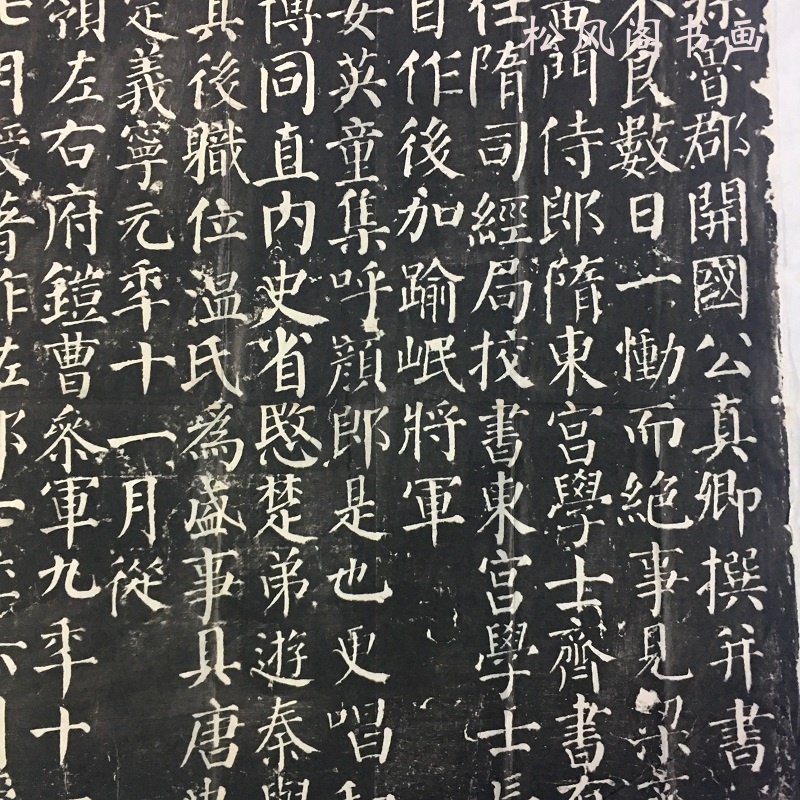 松风阁书画
孫魯郡開國公真卿撰并書
不食數日一慟而絕事見梁齊
黃門侍郎隋東宮學士齊書有
任隋司經局挍書東宮學士長
自作後加踰岷將軍
安英童集呼顏郎是也更唱和
博同直內史省愍楚弟遊秦與
其後職位溫氏為盛事具唐史
定義寧元年十一月從
領左右府鎧曹參軍九年十一
七月授著作佐郎